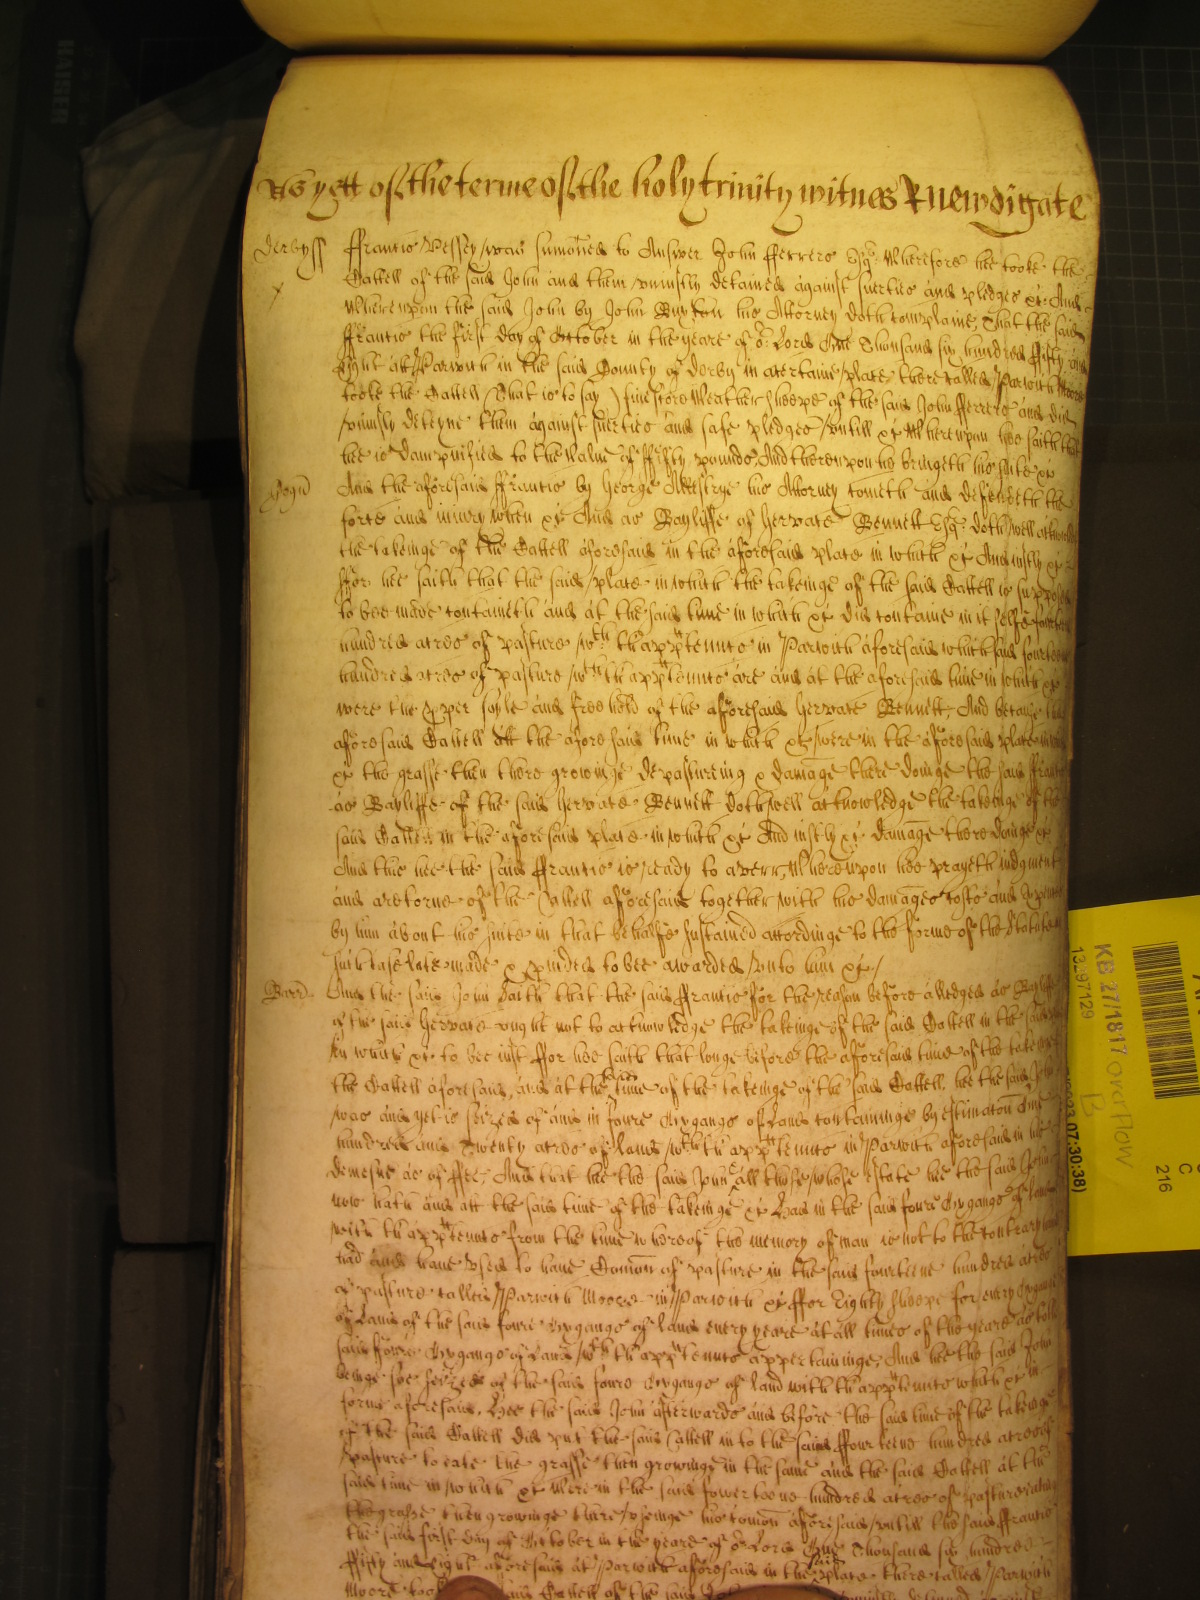 As yett of the terme of the holy trinity witnes R Newdigate
Derbyss ffrancis Vessey was sumoned to Answer John fferrers Esqr. Wherefore hee tooke the
Cattell of the said John and them uniustly detained against suerties and pledges &c And
Whereupon the said John by John Buxton his Attorney doth complaine, That the said
ffrancis the first day of October in the yeare of or. Lord One Thousand six hundred ffifty and
Eight att Parwich in the said County of Derby in a certaine place there called Parwich Moore
tooke the Cattell (That is to say) five score Weather sheepe of the said John fferrers and did
uniustly deteyne them against suerties and safe pledges untill &c Whereupon hee saith that
hee is dampnified to the value of ffifty pounds, And thereupon he bringeth his suite &c
Cogn And the aforesaid ffrancis by George his Attorney cometh and defendeth the
force and iniury when &c And as Bayliffe of Hervate Bennett Esqr. doth well acknowledge
the takeinge of the Cattell aforesaid in the aforesaid place in which &c And iustly &c
ffor hee saith that the said place in which the takeinge of the said Cattell is supposed
to bee made containeth and at the said time in which &c did containe in it selfe fourteen
hundred acres of pasture wth thapptennts in Parwich aforesaid which said fourteen
hundred acres of pasture wth thapptennts are and at the aforesaid time in which &c
were the pper soyle and free hold of the aforesaid Hervate Bennett, And because the
aforesaid Cattell att the aforesaid time in which &c were in the aforesaid place in which
&c the grasse then there growinge depastureing & damage there doinge the said ffrancis
as Bayliffe of the said Hervate Bennett doth well acknowledge the takeinge of the
said Cattell in the aforesaid place in which &c And iustly &c damage there doinge &c
And this hee the said ffrancis is ready to averr, Whereupon hee prayeth iudgment
and a retorne of the Cattell aforesaid together with his damages costs and expences
by him about his suite in that behalfe sustained accordinge to the forme of the Statute in
such case late made & pvided to bee awarded unto him &c
Barr And the said John saith that the said ffrancis for the reason before alledged as Bayliffe
of the said Hervate ought not to acknowledge the takeinge of the said Cattell in the said place
in which &c to bee iust ffor hee saith that longe before the aforesaid time of the takeinge
the Cattell aforesaid, and at the said time of the takeinge of the said Cattell, hee the said John
was and yet is seized of and in foure Oxgangs of Land containinge by estimacon One
hundred and Twenty acres of land wth thapptennts in Parwich aforesaid in his
demesne as of ffee, And that hee the said John & all those whose estate hee the said John
now hath and att the said time of the takeinge &c had in the said foure Oxgangs of land
with thapptennts from the time whereof the memory of man is not to the contrary have
had and have used to have Comon of pasture in the said fourteene hundred acres
of pasture called Parwich Moore in Parwich &c ffor Eighty sheepe for every Oxgange
of Land of the said foure Oxgangs of land every yeare at all times of the yeare as to the
said foure Oxgangs of Land wth thapptennts appertaininge, And hee the said John
beinge soe seized of the said foure Oxgangs of land with thapptennts which &c in
forme aforesaid, Hee the said John afterwards and before the said time of the takeinge
of the said Cattell did put the said Cattell in to the said ffourteene hundred acres of
pasture to eate the grasse then growinge in the same and the said Cattell at the
said time in which &c Were in the said fowerteene hundred acres of pasture eating
the grasse then growinge there useinge his comon aforesaid untill the said ffrancis
the said first day of October in the yeare of or Lord One Thousand six hundred
ffifty and Eight aforesaid at Parwich aforesaid in the said place there called Parwich
Moore tooke said Cattell of the said John
KAISER
KB 27/1817 overflow
B
13297129
07:30:38)
C
216